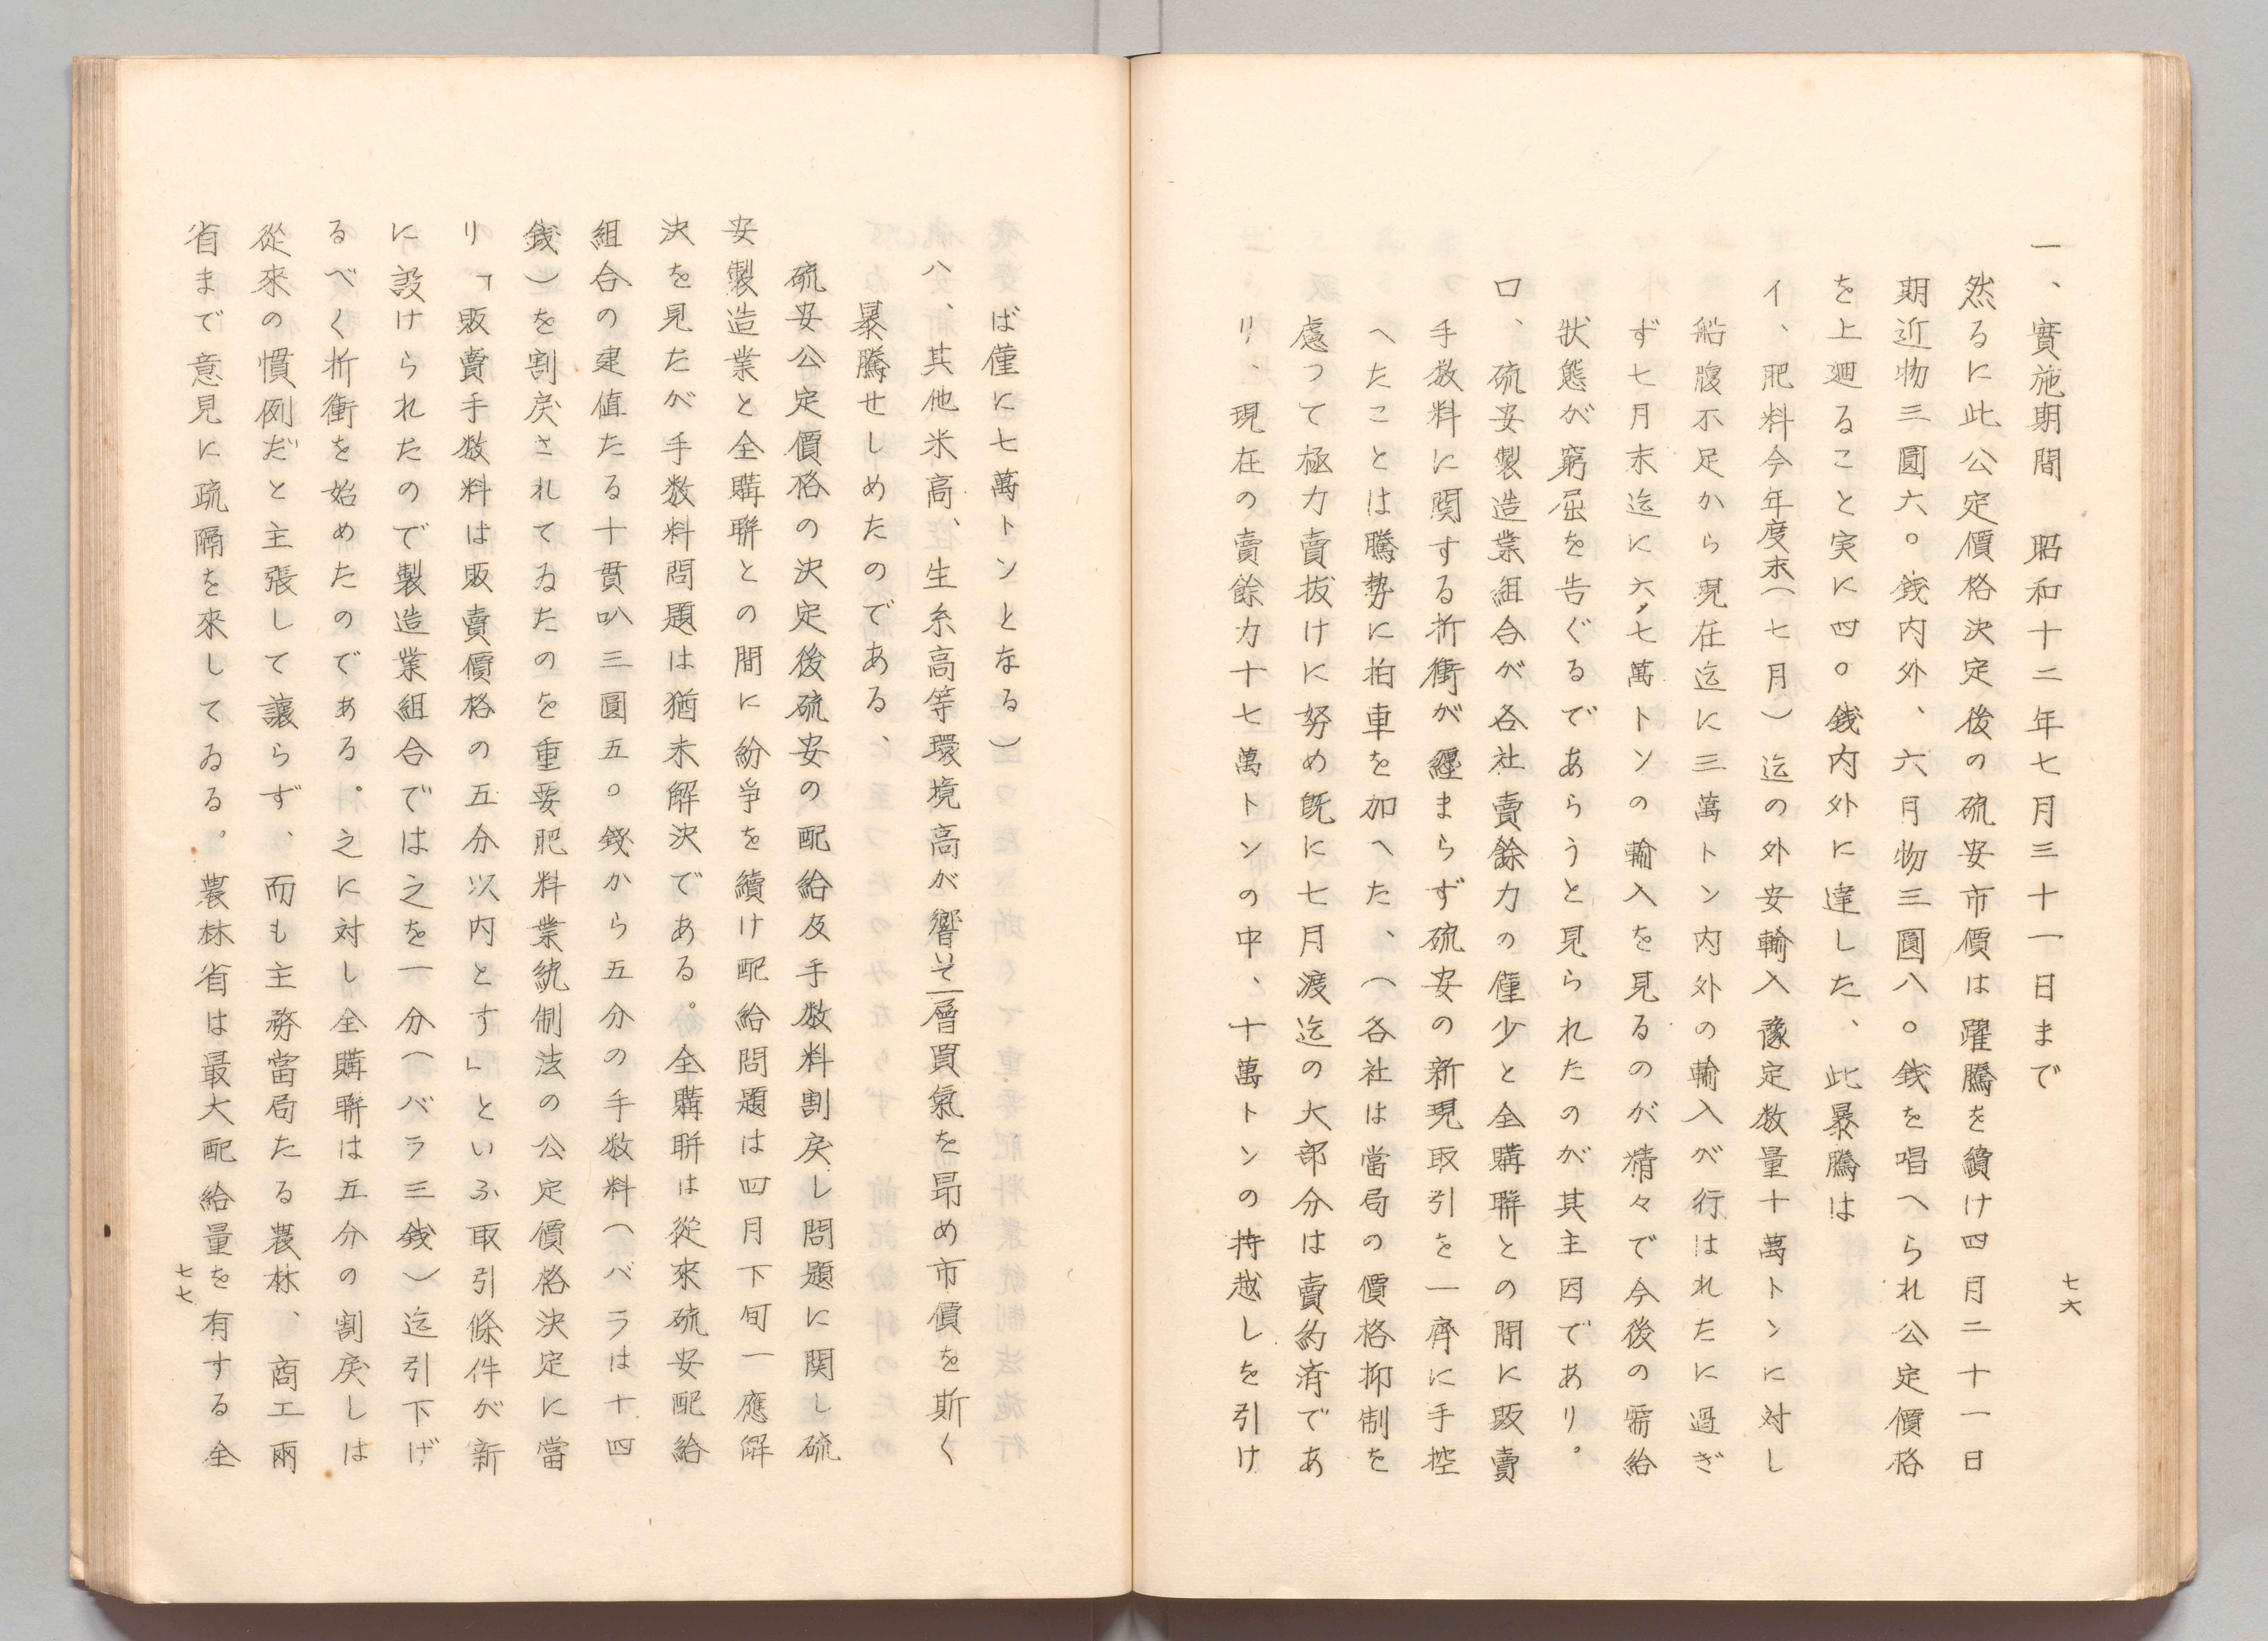 七六
一、實施期間　昭和十二年七月三十一日まで
然るに此公定價格決定後の硫安市價は躍騰を續け四月二十一日
期近物三圓六〇銭内外、六月物三圓八〇銭を唱へられ公定價格
を上廻ること実に四〇銭内外に達した、此暴騰は
イ、肥料今年度末（七月）迄の外安輸入豫定数量十萬トンに対し
船腹不足から現在迄に三萬トン内外の輸入が行はれたに過ぎ
ず七月末迄に六、七萬トンの輸入を見るのが精々で今後の需給
状態が窮屈を告ぐるであらうと見られたのが其主因であり。
ロ、硫安製造業組合が各社賣餘力の僅少と全購聯との間に販賣
手数料に関する折衝が纒まらず硫安の新現取引を一齊に手控
へたことは騰勢に拍車を加へた、（各社は當局の價格抑制を
慮って極力賣拔けに努め既に七月渡迄の大部分は賣約済であ
り、現在の賣餘力十七萬トンの中、十萬トンの持越しを引け
ば僅に七萬トンとなる）
ハ、其他米高、生糸高等環境高が響いて一層買氣を昂め市價を斯く
暴騰せしめたのである、
硫安公定價格の決定後硫安の配給及手数料割戻し問題に関し硫
安製造業と全購聯との間に紛爭を續け配給問題は四月下旬一應解
決を見たが手数料問題は猶未解決である。全購聯は從來硫安配給
組合の建値たる十貫叺三圓五〇錢から五分の手数料（バラは十四
銭）を割戻されてゐたのを重要肥料業統制法の公定價格決定に當
り「販賣手数料は販賣價格の五分以内とす」といふ取引條件が新
に設けられたので製造業組合では之を一分（バラ三銭）迄引下げ
るべく折衝を始めたのである。之に対し全購聯は五分の割戻しは
從來の慣例だと主張して讓らず、而も主務當局たる農林、商工兩
省まで意見に疏隔を來してゐる。農林省は最大配給量を有する全
七七